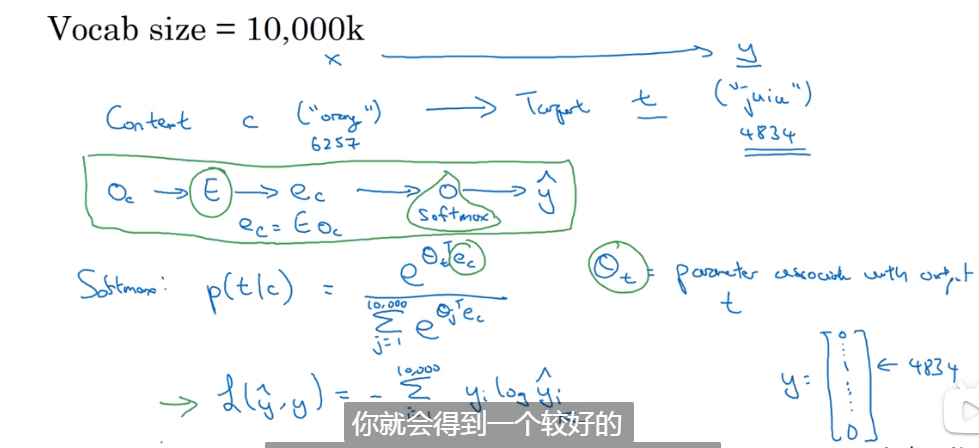 Vocab size = 10,000k
x → y
Content c ("orang") → Target t ("juice")
6257
4834
O_c → E → e_c → O → ŷ
softmax
e_c = E O_c
Softmax: p(t|c) = e^{θ_t^T e_c} / Σ_{j=1}^{10,000} e^{θ_j^T e_c}
θ_t = parameter associate with output t
→ L(ŷ, y) = - Σ^{10,000} y_i log ŷ_i
y = [0 ⋮ 1 ⋮ 0] ← 4834
你就会得到一个较好的